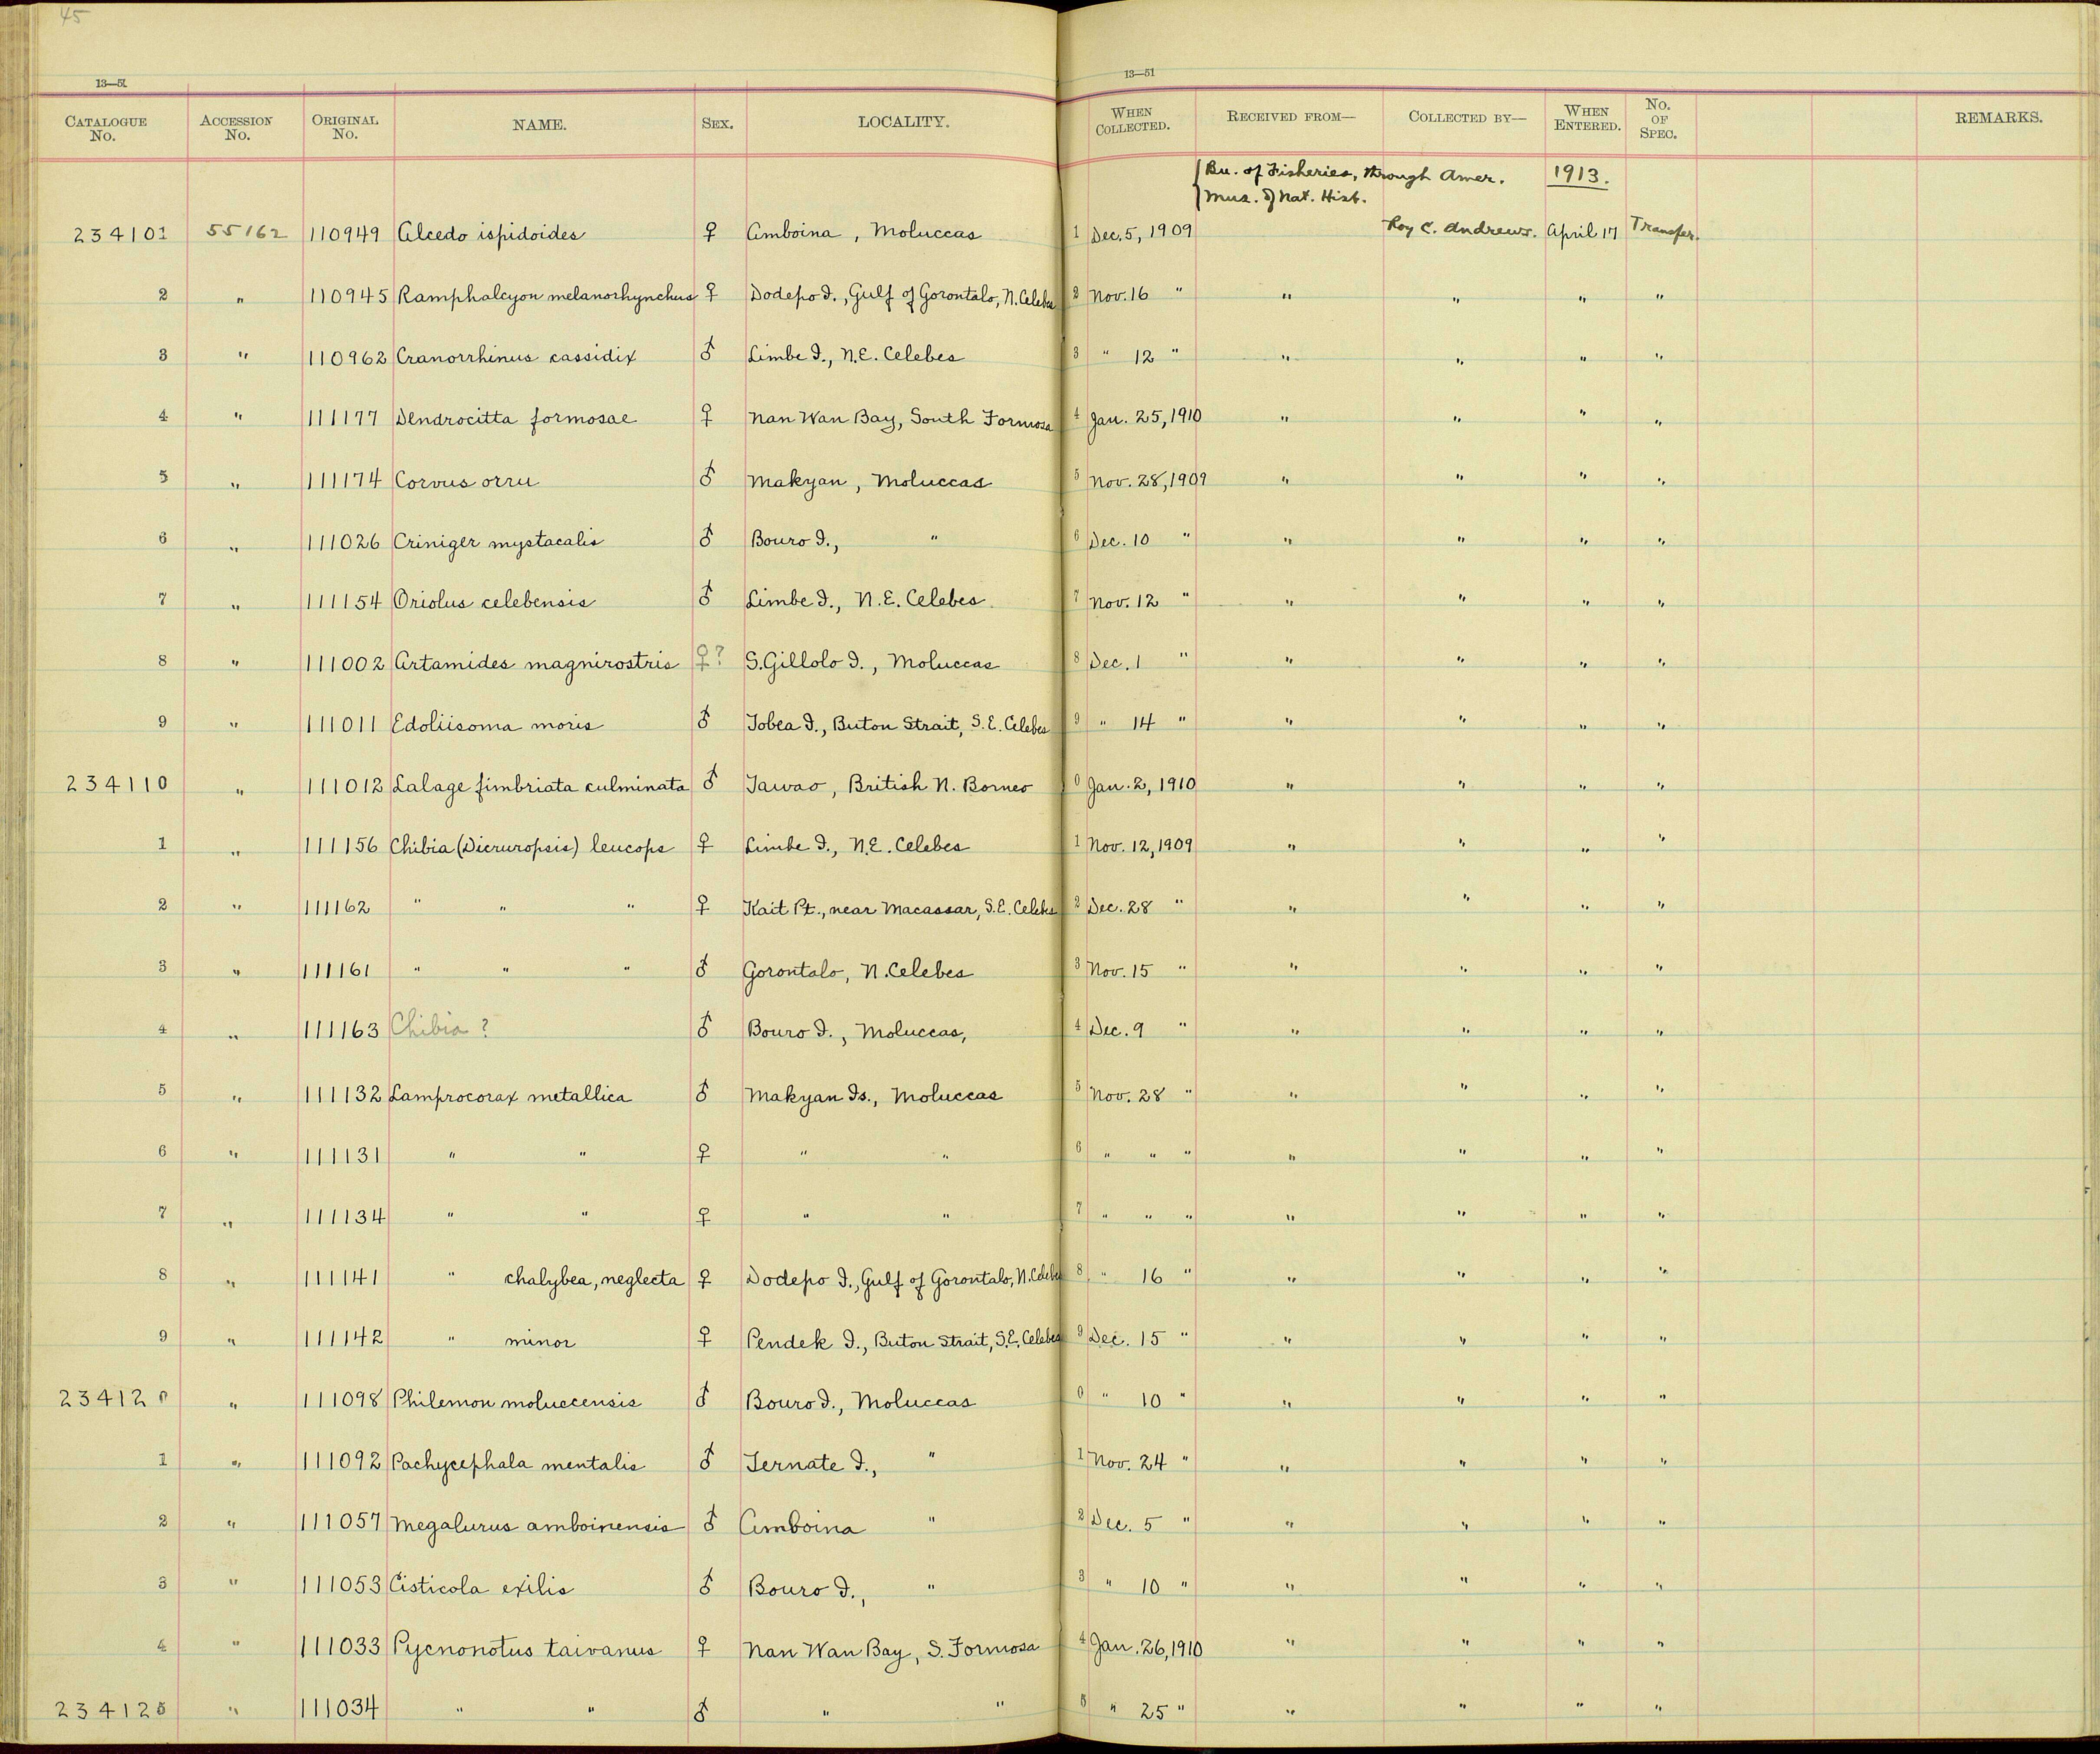 45
13—51 13—51
CATALOGUE No. ACCESSION No. ORIGINAL No. NAME. SEX. LOCALITY. WHEN COLLECTED. RECEIVED FROM— COLLECTED BY— WHEN ENTERED. No. OF SPEC. REMARKS.
Bu. of Fisheries, through Amer. 1913.
Mus. of Nat. Hist.
234101 55162 110949 Alcedo ispidoides ♀ Amboina, Moluccas 1 Dec. 5, 1909 Roy C. Andrews. April 17 Transfer.
2 " 110945 Ramphalcyon melanorhynchus ♀ Dodepo I., Gulf of Gorontalo, N. Celebes 2 Nov. 16 " " " " "
3 " 110962 Cranorrhinus cassidix ♂ Limbe I., N.E. Celebes 3 " 12 " " " " "
4 " 111177 Dendrocitta formosae ♀ Nan Wan Bay, South Formosa 4 Jan. 25, 1910 " " " "
5 " 111174 Corvus orru ♂ Makyan, Moluccas 5 Nov. 28, 1909 " " " "
6 " 111026 Criniger mystacalis ♂ Bouro I., " 6 Dec. 10 " " " " "
7 " 111154 Oriolus celebensis ♂ Limbe I., N.E. Celebes 7 Nov. 12 " " " " "
8 " 111002 Artamides magnirostris ♀? S. Gillolo I., Moluccas 8 Dec. 1 " " " " "
9 " 111011 Edoliisoma moris ♂ Tobea I., Buton Strait, S.E. Celebes 9 " 14 " " " " "
234110 " 111012 Lalage fimbriata culminata ♂ Tawao, British N. Borneo 0 Jan. 2, 1910 " " " "
1 " 111156 Chibia (Dicruropsis) leucops ♀ Limbe I., N.E. Celebes 1 Nov. 12, 1909 " " " "
2 " 111162 " " " ♀ Kait Pt., near Macassar, S.E. Celebes 2 Dec. 28 " " " " "
3 " 111161 " " " ♂ Gorontalo, N. Celebes 3 Nov. 15 " " " " "
4 " 111163 Chibia ? ♂ Bouro I., Moluccas, 4 Dec. 9 " " " " "
5 " 111132 Lamprocorax metallica ♂ Makyan Is., Moluccas 5 Nov. 28 " " " " "
6 " 111131 " " ♀ " " 6 " " " " " " "
7 " 111134 " " ♀ " " 7 " " " " " " "
8 " 111141 " chalybea, neglecta ♀ Dodepo I., Gulf of Gorontalo, N. Celebes 8 " 16 " " " " "
9 " 111142 " minor ♀ Pendek I., Buton Strait, S.E. Celebes 9 Dec. 15 " " " " "
234120 " 111098 Philemon moluccensis ♂ Bouro I., Moluccas 0 " 10 " " " " "
1 " 111092 Pachycephala mentalis ♂ Ternate I., " 1 Nov. 24 " " " " "
2 " 111057 Megalurus amboinensis ♂ Amboina " 2 Dec. 5 " " " " "
3 " 111053 Cisticola exilis ♂ Bouro I., " 3 " 10 " " " " "
4 " 111033 Pycnonotus taivanus ♀ Nan Wan Bay, S. Formosa 4 Jan. 26, 1910 " " " "
234125 " 111034 " " ♂ " " 5 " 25 " " " " "